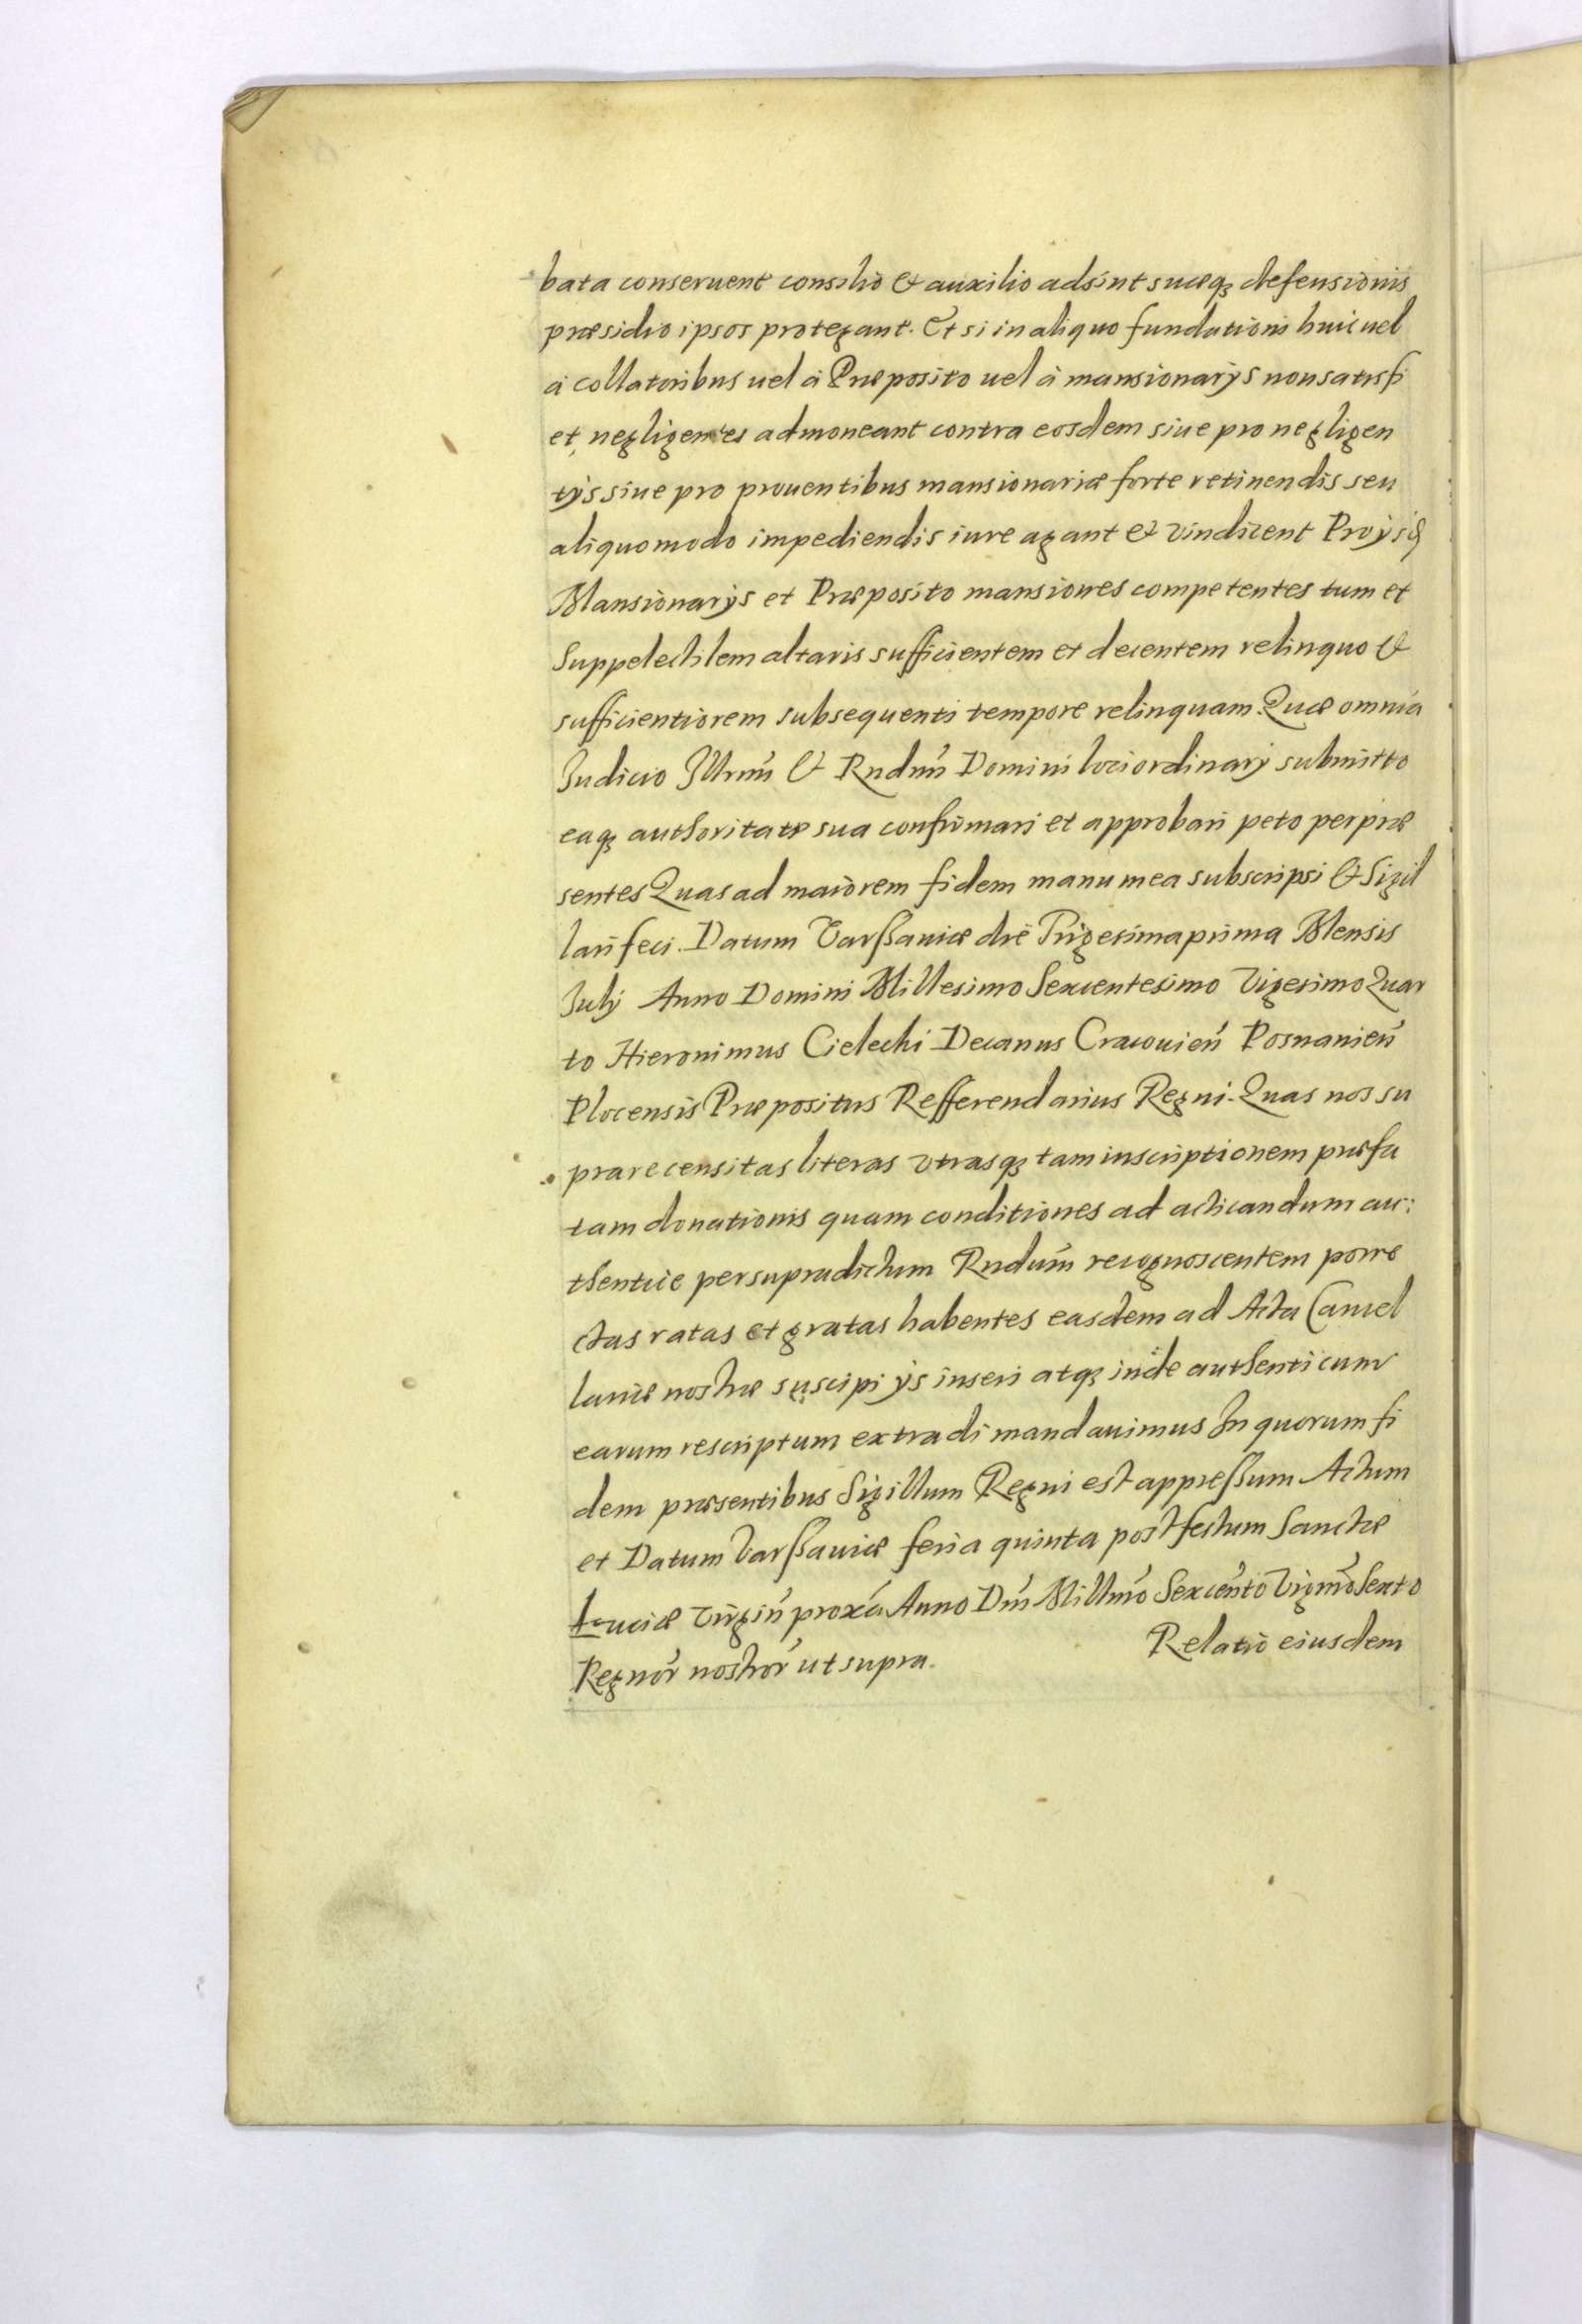 bata conseruent consilio & auxilio adsint suæq₃ defensionis
præsidio ipsos protegant. Et si in aliquo fundationi huic uel
à collatoribus uel à Præposito uel à mansionarÿs non satisfi
et, negligentes admoneant contra eosdem siue pro negligen
tÿs siue pro prouentibus mansionariæ forte retinendis seu
aliquo modo impediendis iure agant & vindicent Pro ÿsq₃
Mansionarÿs et Præposito mansiones competentes tum et
Suppelectilem altaris sufficientem et decentem relinquo &
sufficientiorem subsequenti tempore relinquam. Quæ omnia
Judicio Jllrmi & Rndmi Domini loci ordinarÿ submitto
eaq₃ authoritate sua confirmari et approbari peto per præ
sentes Quas ad maiorem fidem manu mea subscripsi & Sigil
lari feci. Datum Varssauiæ die Trigesima prima Mensis
Julÿ Anno Domini Millesimo Sexcentesimo Vigesimo Quar
to Hieronimus Cielecki Decanus Cracouień Posnanień
Plocensis Præpositus Refferendarius Regni. Quas nos su
prarecensitas literas vtrasq₃ tam inscriptionem præfa
tam donationis quam conditiones ad acticandum au:
thentice per supradictum Rndum recognoscentem porre
ctas ratas et gratas habentes easdem ad Acta Cancel
lariæ nostræ suscipi ÿs inseri atq₃ inde authenticum
earum rescriptum extradi mandauimus Jn quorum fi
dem præsentibus Sigillum Regni est appressum Actum
et Datum Varssauiæ feria quinta post festum Sanctæ
Luciæ Virgiń proxá Anno Dni Millmo Sexcento Vigmo Sexto
Regnor nostror ut supra. Relatio eiusdem